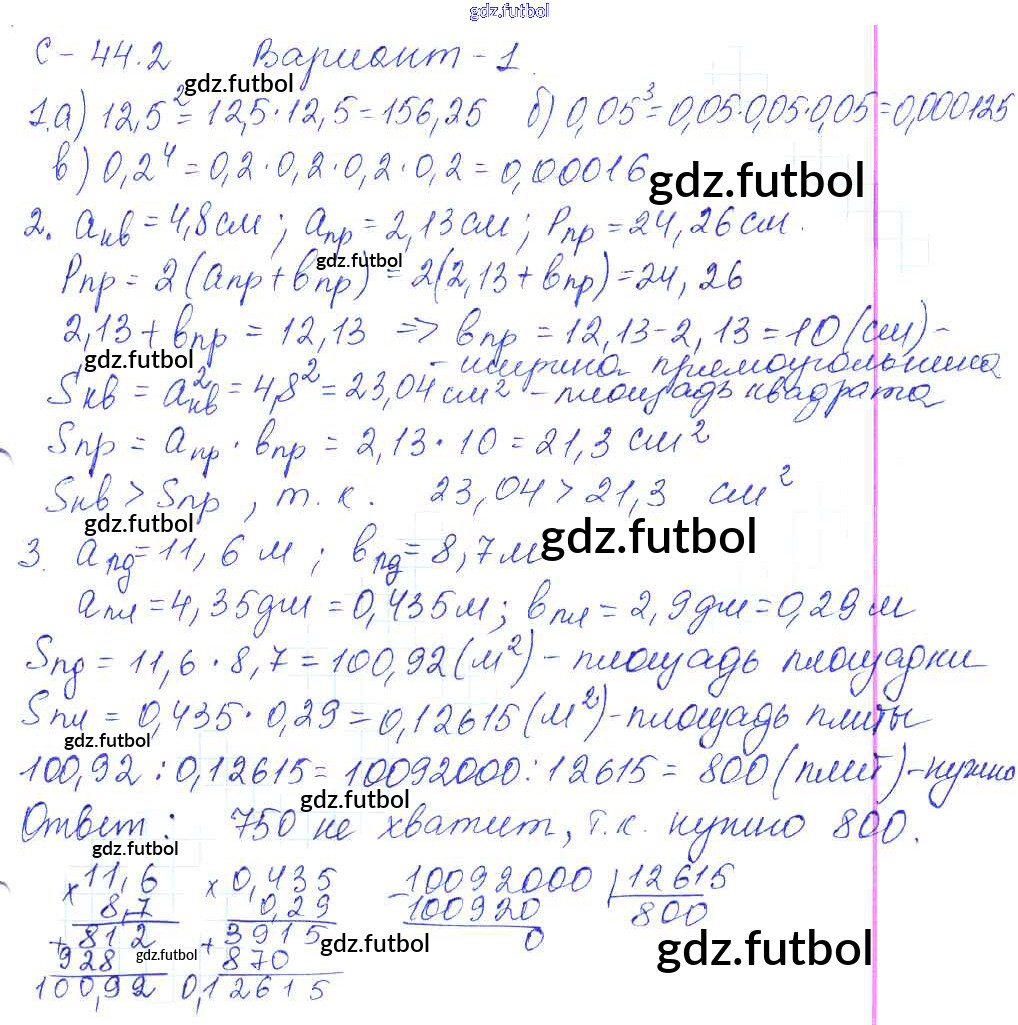 gdz.futbol
С-44.2 Вариант-1.
gdz.futbol
1.а) 12,5² = 12,5·12,5=156,25 б) 0,05³=0,05·0,05·0,05=0,000125
в) 0,2⁴ = 0,2·0,2·0,2·0,2=0,00016
gdz.futbol
2. aкв = 4,8см; aпр = 2,13см; Pпр = 24,26см.
gdz.futbol
Pпр = 2(aпр+bпр) = 2(2,13+bпр)=24,26
2,13+bпр = 12,13 => bпр = 12,13-2,13=10(см)-
gdz.futbol
- ширина прямоугольника
Sкв = a²кв = 4,8² = 23,04см² - площадь квадрата
Sпр = aпр · bпр = 2,13·10 = 21,3 см²
Sкв > Sпр, т.к. 23,04 > 21,3 см²
gdz.futbol
gdz.futbol
3. aпд = 11,6 м; bпд = 8,7м
aпл = 4,35дм = 0,435м; bпл = 2,9дм=0,29м
Sпд = 11,6·8,7=100,92(м²) - площадь площадки
Sпл = 0,435·0,29=0,12615(м²)-площадь плиты
gdz.futbol
100,92:0,12615=10092000:12615=800(плит)-нужно
gdz.futbol
Ответ: 750 не хватит, т.к. нужно 800.
gdz.futbol
×11,6 ×0,435 -10092000 |12615
8,7 0,29 100920 800
+812 +3915 0
gdz.futbol
gdz.futbol
928 870
gdz.futbol
100,92 0,12615